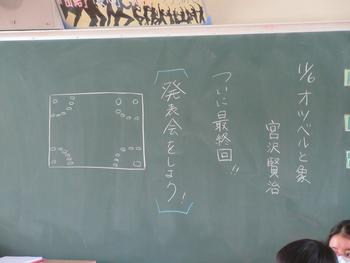 11/6 オツベルと象
宮沢賢治
ついに最終回!!
「発表会をしよう!」